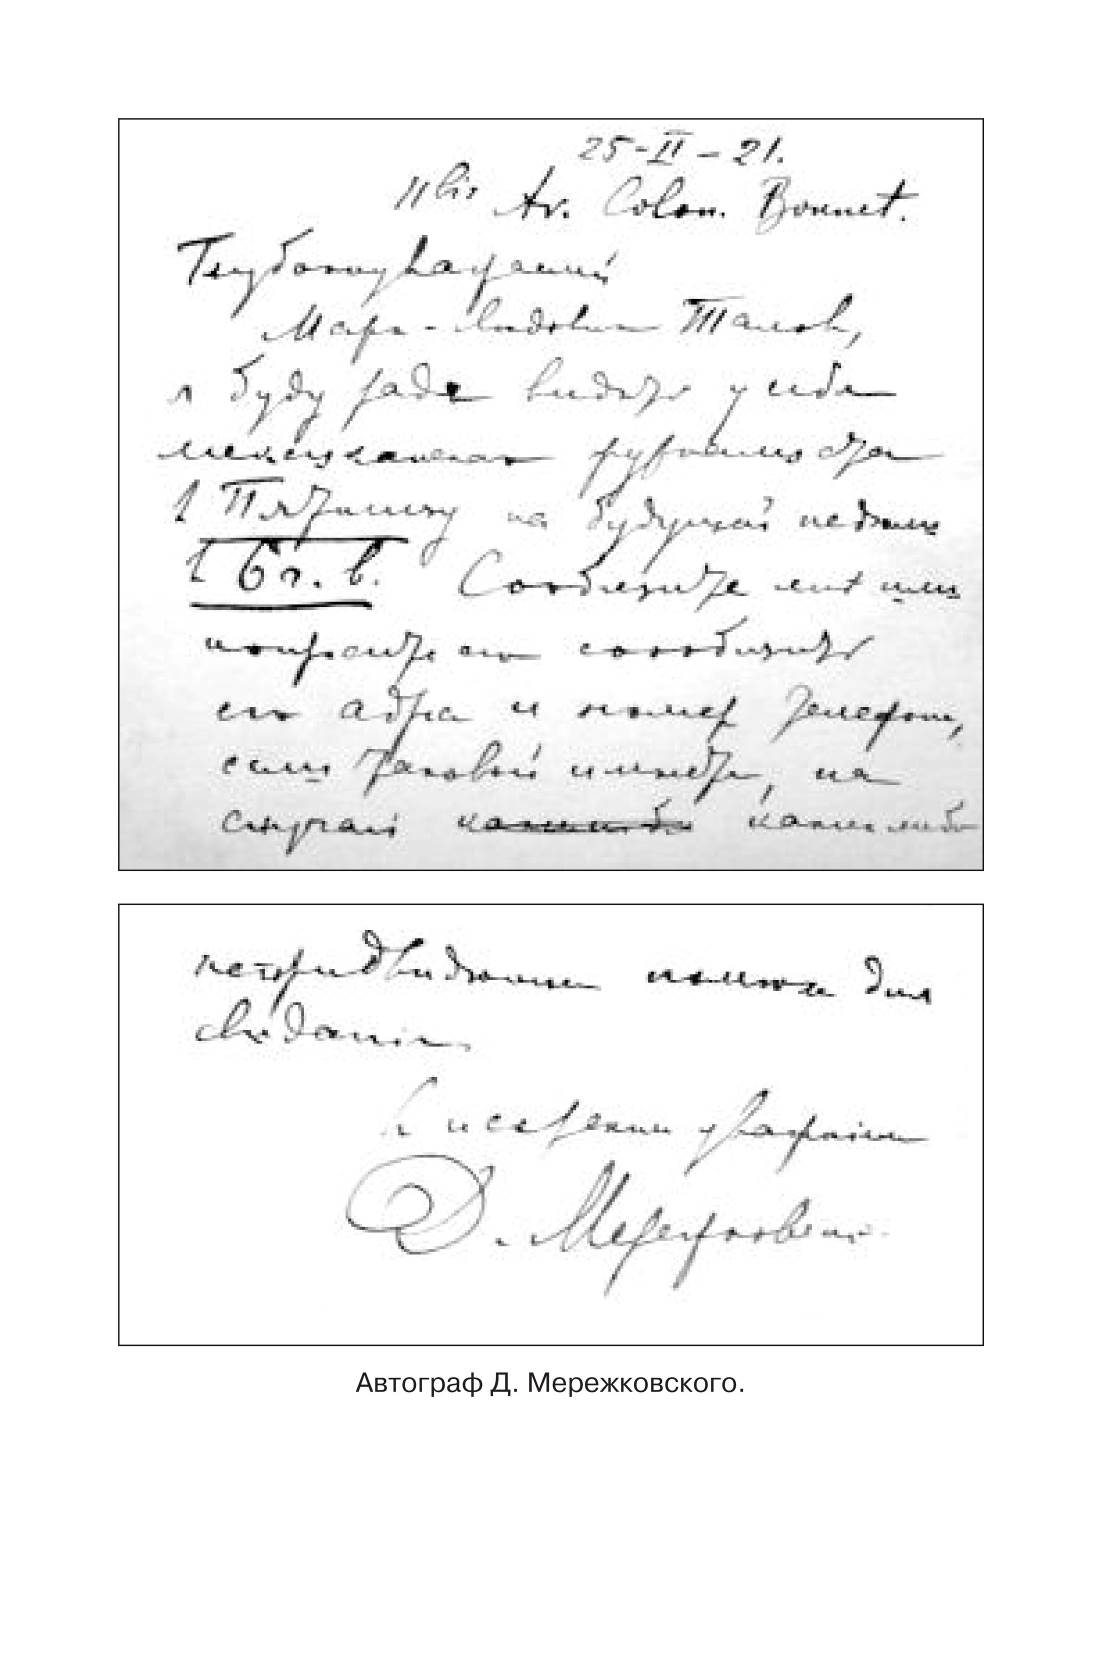 25-II-21.
11 bis Av. Colon. Bonnet.
Глубокоуважаемый
Марк-Людовик Талов,
я буду рад видеть у себя
мексиканского журналиста
в Пятницу на будущей неделе
в 6 ч. в. Сообщите мне или
попросите его сообщить
его адрес и номер телефона,
если таковой имеется, на
случай какой-либо
непредвиденной помехи для
свидания.
С искренним уважением
Д. Мережковский.
Автограф Д. Мережковского.